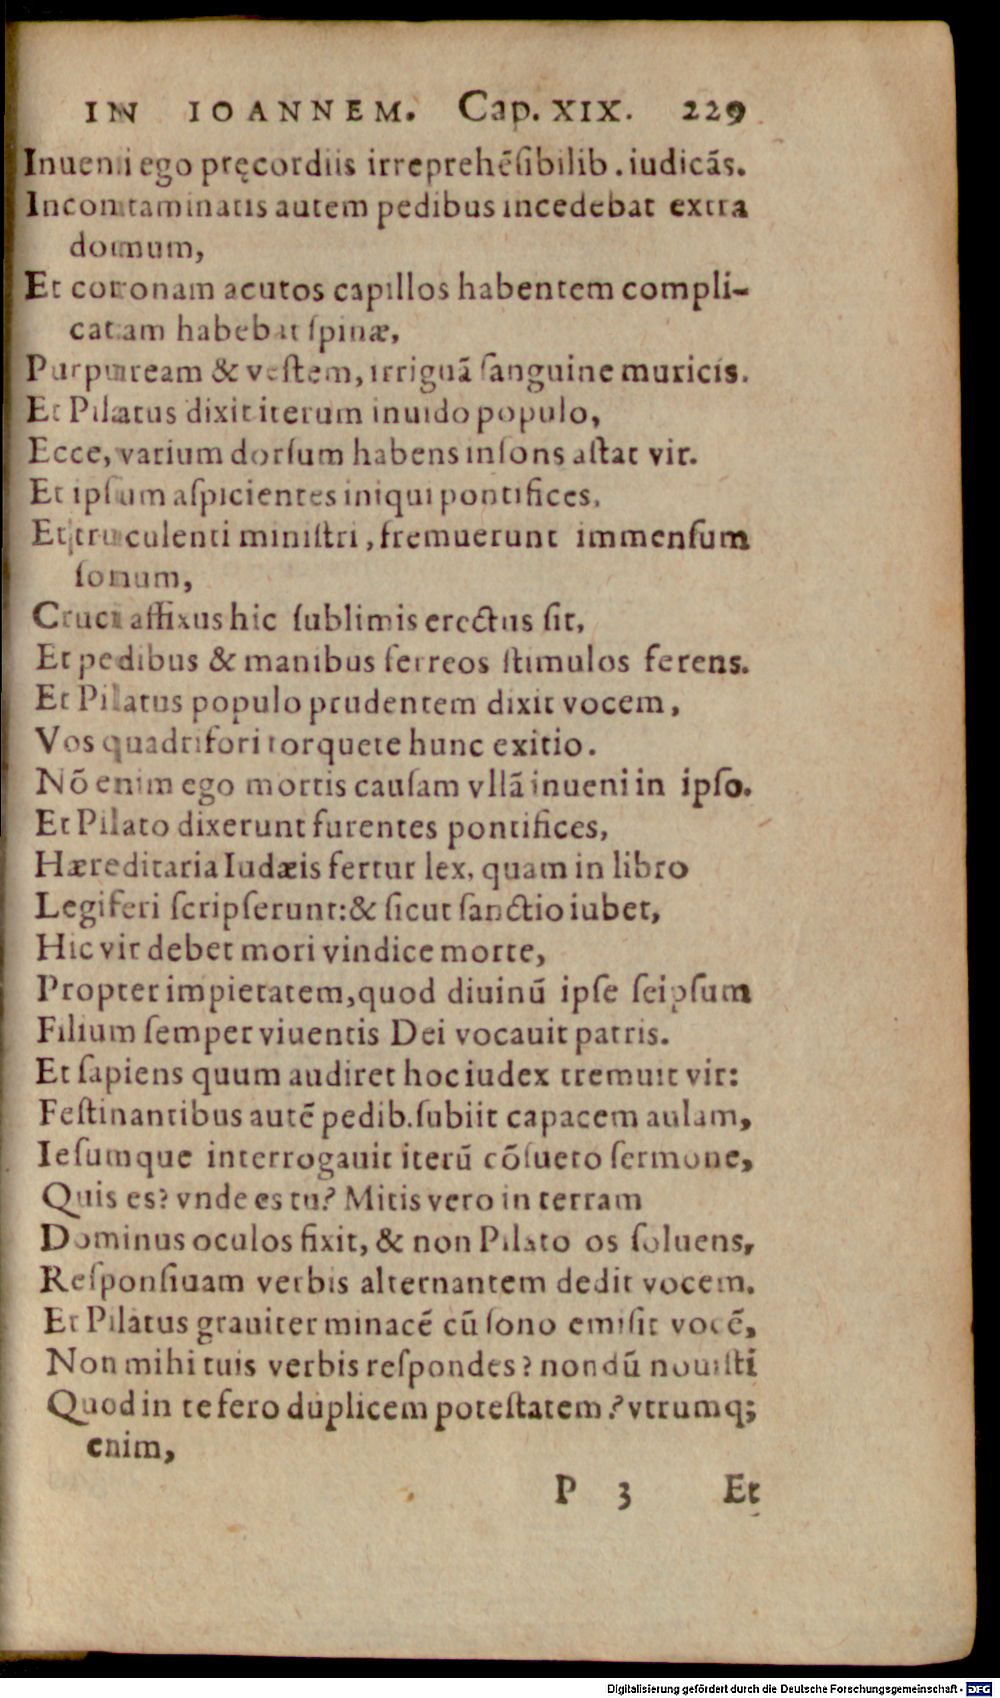 IN IOANNEM. Cap. XIX. 229
Inueni ego pręcordiis irreprehẽſibilib. iudicãs.
Incontaminatis autem pedibus incedebat extra
domum,
Et coronam acutos capillos habentem compli-
catam habebat ſpinæ,
Purpuream & veſtem, irriguã ſanguine muricis.
Et Pilatus dixit iterum inuido populo,
Ecce, varium dorſum habens inſons aſtat vir.
Et ipſum aſpicientes iniqui pontifices,
Et truculenti miniſtri, fremuerunt immenſum
ſonum,
Cruci affixus hic ſublimis erectus ſit,
Et pedibus & manibus ferreos ſtimulos ferens.
Et Pilatus populo prudentem dixit vocem,
Vos quadrifori torquete hunc exitio.
Nõ enim ego mortis cauſam vllã inueni in ipſo.
Et Pilato dixerunt furentes pontifices,
Hæreditaria Iudæis fertur lex, quam in libro
Legiferi ſcripſerunt: & ſicut ſanctio iubet,
Hic vir debet mori vindice morte,
Propter impietatem, quod diuinũ ipſe ſeipſum
Filium ſemper viuentis Dei vocauit patris.
Et ſapiens quum audiret hoc iudex tremuit vir:
Feſtinantibus autẽ pedib. ſubiit capacem aulam,
Ieſumque interrogauit iterũ cõſueto ſermone,
Quis es? vnde es tu? Mitis vero in terram
Dominus oculos fixit, & non Pilato os ſoluens,
Reſponſiuam verbis alternantem dedit vocem.
Et Pilatus grauiter minacẽ cũ ſono emiſit vocẽ,
Non mihi tuis verbis reſpondes? nondũ nouiſti
Quod in te fero duplicem poteſtatem? vtrumq;
enim,
P 3 Et
Digitalisierung gefördert durch die Deutsche Forschungsgemeinschaft - DFG